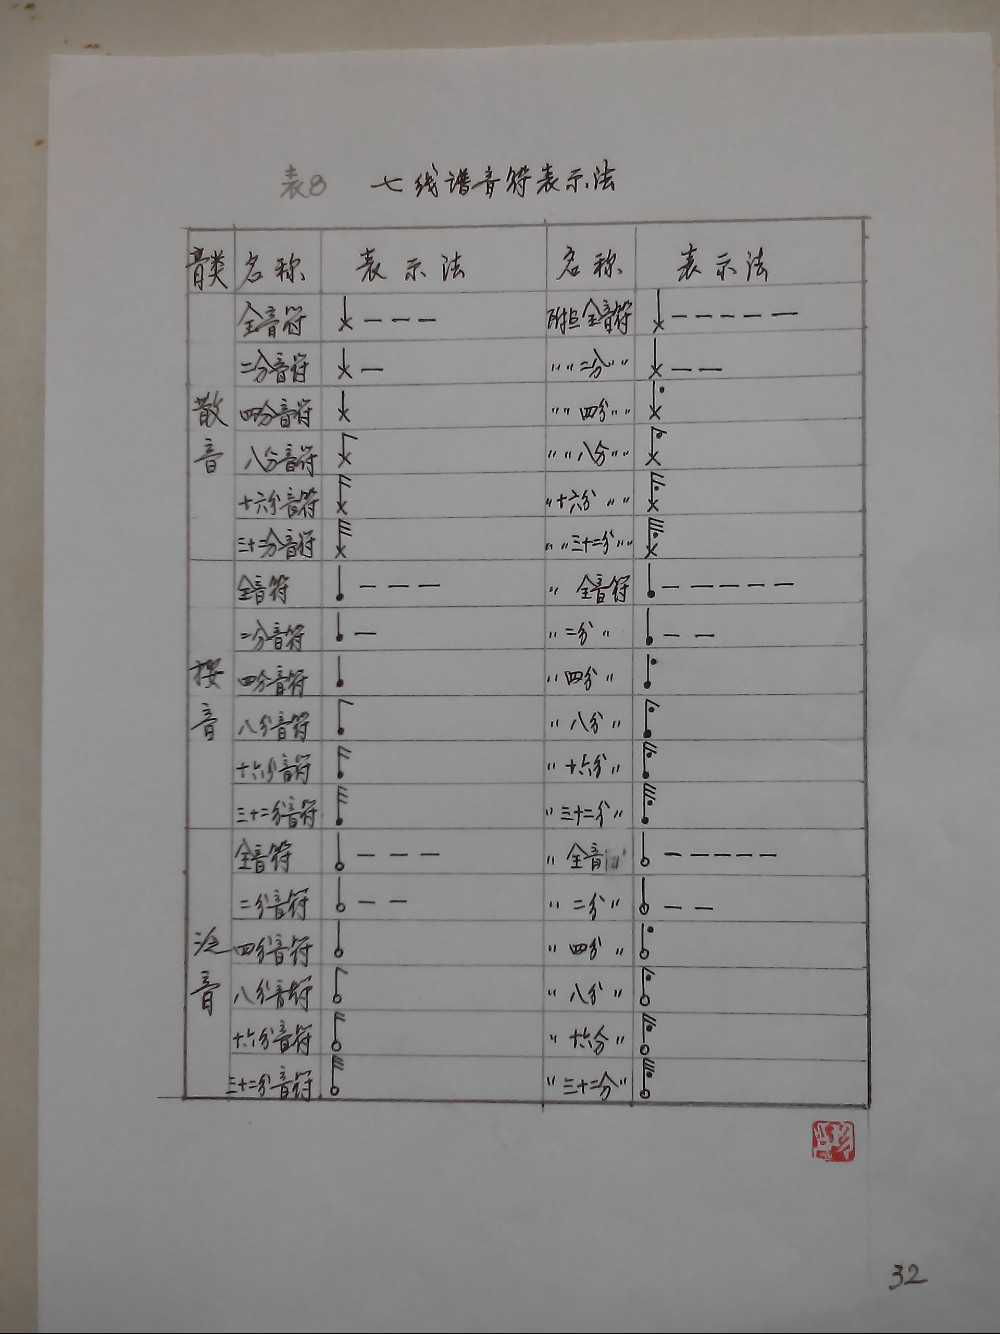 表8 七线谱音符表示法
音类 名称 表示法 名称 表示法
全音符 — — — 附点全音符 — — — — —
二分音符 — 〃〃二分〃〃 — —
散音
四分音符 〃〃四分〃〃
八分音符 〃〃八分〃〃
十六分音符 〃十六分〃〃
三十二分音符 〃〃三十二分〃〃
全音符 — — — 〃全音符 — — — — —
二分音符 — 〃二分〃 — —
按音
四分音符 〃四分〃
八分音符 〃八分〃
十六分音符 〃十六分〃
三十二分音符 〃三十二分〃
全音符 — — — 〃全音〃 — — — — —
二分音符 — — 〃二分〃 — —
泛音
四分音符 〃四分〃
八分音符 〃八分〃
十六分音符 〃十六分〃
三十二分音符 〃三十二分〃
32